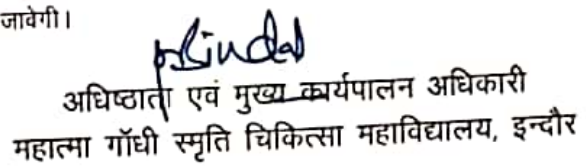 जावेगी।
अधिष्ठाता एवं मुख्य कार्यपालन अधिकारी
महात्मा गॉधी स्मृति चिकित्सा महाविद्यालय, इन्दौर